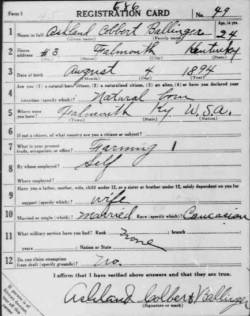 Form 1 EXG No. 49
REGISTRATION CARD
1 Name in full Ashland Colbert Ballinger Age, in yrs. 24
(Given name) (Family name)
2 Home address #3 Falmouth Kentucky
3 Date of birth August 4 1894
(Month) (Day) (Year)
4 Are you (1) a natural-born citizen, (2) a naturalized citizen, (3) an alien, (4) or have you declared your intention (specify which)? Natural born
5 Where were you born? Falmouth Ky U.S.A.
(Town) (State) (Nation)
6 If not a citizen, of what country are you a citizen or subject?
7 What is your present trade, occupation, or office? Farming 1
8 By whom employed? Self
Where employed?
9 Have you a father, mother, wife, child under 12, or a sister or brother under 12, solely dependent on you for support (specify which)? wife
10 Married or single (which)? Married Race (specify which)? Caucasian
11 What military service have you had? Rank None branch
years Nation or State
12 Do you claim exemption from draft (specify grounds)? No.
I affirm that I have verified above answers and that they are true.
Ashland Colbert Ballinger
(Signature or mark)